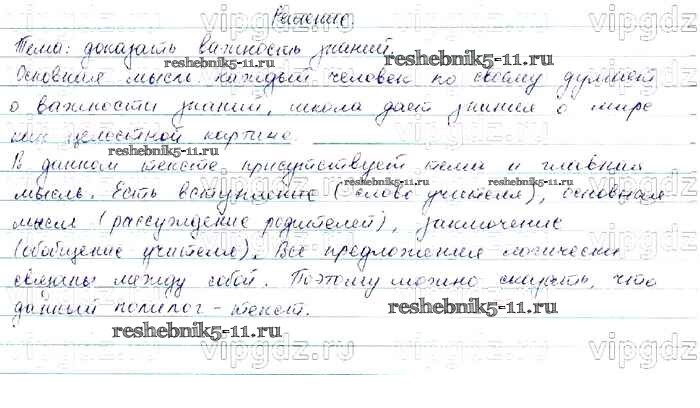 Решение
Тема: доказать важность знаний.
Основная мысль: каждый человек по своему думает
о важности знаний, школа дает знания о мире
как целостной картине.
В данном тексте присутствует тема и главная
мысль. Есть вступление (слово учителя), основная
мысль (рассуждение родителей), заключение
(обобщение учителя). Все предложения логически
связаны между собой. Поэтому можно сказать, что
данный полилог - текст.
vipgdz.ru
reshebnik5-11.ru
reshebnik5-11.ru
reshebnik5-11.ru
reshebnik5-11.ru
reshebnik5-11.ru
vipgdz.ru
vipgdz.ru